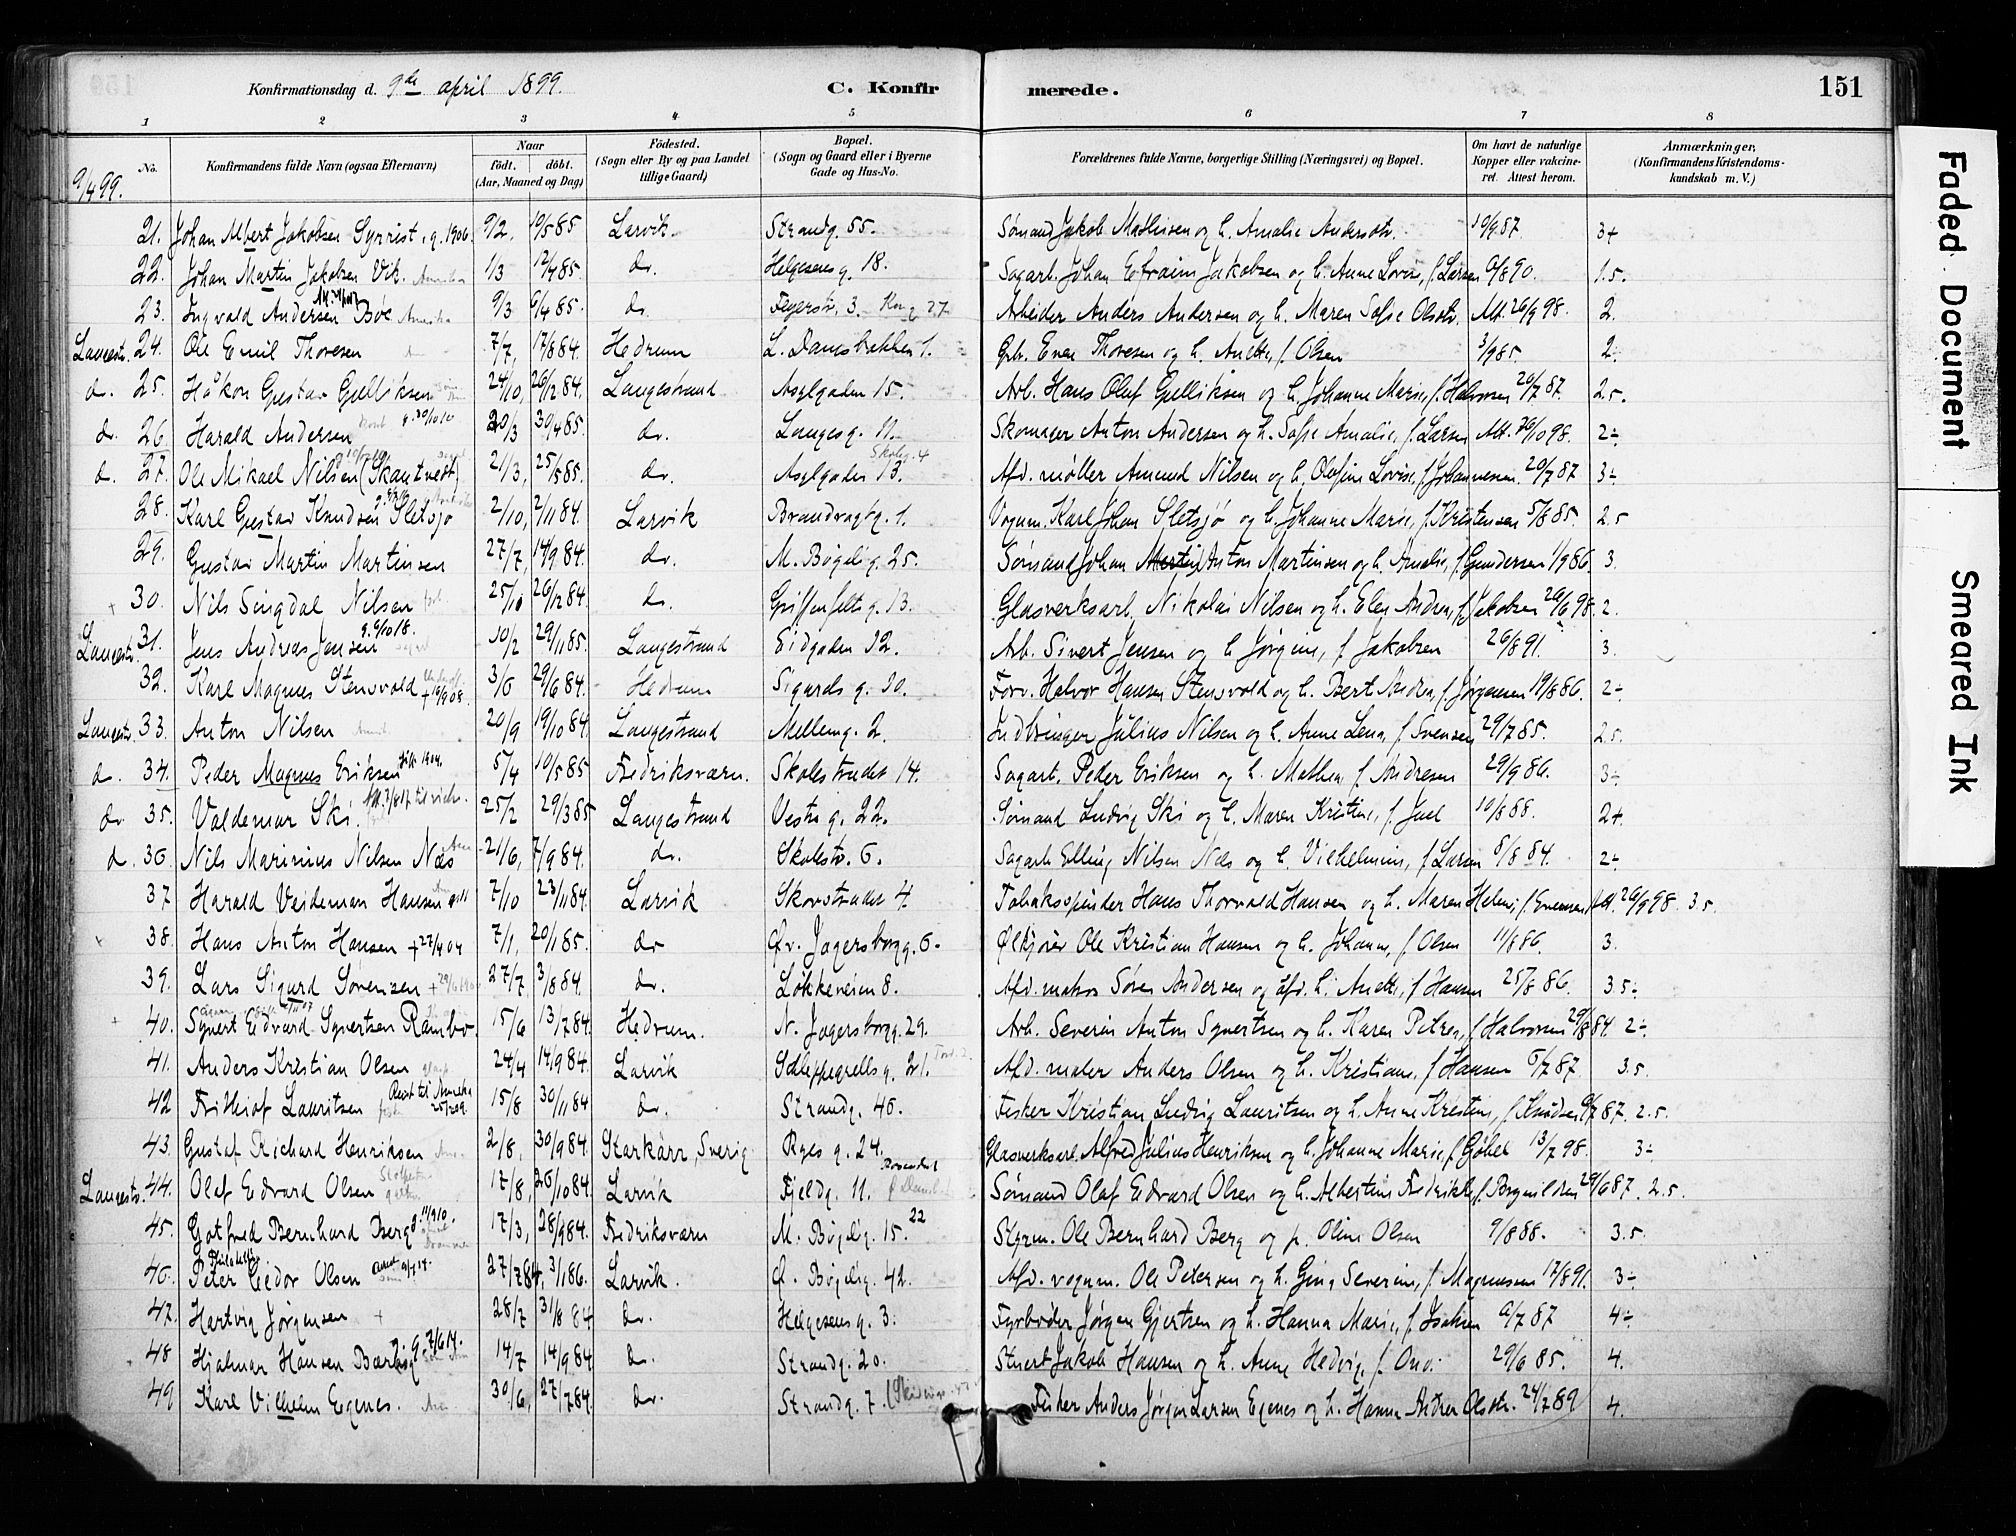 Konfirmationsdag d. 9de april 1899. C. Konfirmerede. 151
1 2 3 4 5 6 7 8
No. Konfirmandens fulde Navn (ogsaa Efternavn) Naar født. døbt. (Aar, Maaned og Dag) Fødested. (Sogn eller By og paa Landet tillige Gaard) Bopæl. (Sogn og Gaard eller i Byerne Gade og Hus-No. Forældrenes fulde Navne, borgerlige Stilling (Næringsvei) og Bopæl. Om havt de naturlige Kopper eller vakcineret. Attest herom. Anmærkninger, (Konfirmandens Kristendomskundskab m. V.)
9/4 99.
21. Johan Albert Jakobsen Syrrist, g. 1906. 9/2, 10/5 85 Larvik. Strandg. 55. Sømand Jakob Mathisen og h. Amalie Andersdtr. 10/9 87. 3+
22. Johan Martin Jakobsen Vik. 1/3 12/4 85. do. Helgesens g. 18. Sagarb. Johan Efraim Jakobsen og h. Anne Lovise, f. Larsen 9/8 90. 1.5.
23. Ingvald Andersen Bøe 9/3 6/4 85. do. Feyerstr. 3. Arbeider Anders Andersen og h. Maren Sofie Olsdtr. Att. 26/9 98. 2.
Langestr. 24. Ole Emil Thoresen 7/7, 17/8 84. Hedrum L. Damsbakken 1. Grb. Even Thoresen og h. Anette, f. Olsen 3/9 85. 2-
d. 25. Håkon Gustav Gulliksen 24/10, 26/12 84. Langestrand Aslgaden 15. Arb. Hans Oluf Gulliksen og h. Johanne Marie, f. Halvorsen 20/7 87. 2.5.
d. 26. Harald Andersen g. 30/10 10 20/3 30/4 85. do. Langes g. 11. Skomager Anton Andersen og h. Sofie Amalie, f. Larsen Att. 26/10 98. 2-
d. 27. Ole Mikael Nilsen (Skantvedt) 21/3, 25/5 85. do. Aslgaden 13. Skoleg. 4 Afd. møller Amund Nilsen og h. Olefine Lovise, f. Johannesen 20/7 87 3-
28. Karl Gustav Knudsen Sletsjø 2/10, 2/11 84. Larvik Brandvagtg. 1. Vognm. Karl Johan Sletsjø og h. Johanne Marie, f. Kristensen 5/8 85. 2.5
29. Gustav Martin Martinsen 27/7, 14/9 84. do. M. Bøgelig. 25. Sømand Johan Anton Martinsen og h. Amalie, f. Gundersen 1/9 86. 3.
30. Nils Singdal Nilsen 25/10 26/12 84. do. Griffenfeltsg. 13. Glasverksarb. Nikolai Nilsen og h. Elen Andrea, f. Jakobsen 26/6 98. 2.
Langestr. 31. Jens Andreas Jensen g. 6/10 18. 10/2 29/11 85. Langestrand Eidgaden 12. Arb. Sivert Jensen og h. Jørgine, f. Jakobsen 26/8 91. 3.
32. Karl Magnus Stensvold + 19/9 08. 3/6 29/6 84. Hedrum Sigurds g. 10. Forv. Halvor Hansen Stensvold og h. Bert Andrea, f. Jørgensen 19/8 86. 2-
Langestr. 33. Anton Nilsen 20/9 19/10 84. Langestrand Mellemg. 2. Indbringer Julius Nilsen og h. Anne Lena, f. Svensen 29/7 85. 2.5.
d. 34. Peder Magnus Eriksen 1904. 5/4 10/5 85 Fredriksværn. Skolestrædet 14. Sagarb. Peder Eriksen og h. Mathea f. Andresen 29/9 86. 3-
do 35. Valdemar Ski. 25/2 29/3 85 Langestrand Vestre g. 22. Sømand Ludvig Ski og h. Maren Kristine, f. Juel 10/8 88. 2+.
d. 36. Nils Marinius Nilsen Næs 21/6, 7/9 84. do. Skolestr. 6. Sagarb Elling Nilsen Næs og h. Vilhelmine, f. Larsen 8/8 84. 2-
37 Harald Valdemar Hansen 7/10 23/11 84. Larvik Skovstrædet 4. Tobaksspinder Hans Thorvald Hansen og h. Maren Helene, f. Evensen, Att. 26/9 98. 3.5.
38. Hans Anton Hansen + 27/4 04 7/1, 20/1 85. do Ø. Jegersborgg. 6. Ølkjører Ole Kristian Hansen og h. Johanne, f. Olsen 11/8 86. 3.
39. Lars Sigurd Sørensen 27/7, 3/8 84. do. Løkkeveien 8. Afd. matros Søren Andersen og afd. h. Anette, f. Hansen 25/8 86. 3.5-
40. Syvert Edvard Syvertsen Rambo. 15/6 13/7 84. Hedrum. N. Jegersborgg. 29. Arb. Severin Anton Syvertsen og h. Karen Petrea, f. Halvorsen 29/8 84 2-
41. Anders Kristian Olsen 24/4 14/9 84. Larvik Schleppegrells g. 21. Afd. maler Anders Olsen og h. Kristiane, f. Hansen 6/7 87. 3.5.
42 Frithiof Lauritsen Reist til Amerika 25/2 09. 15/8 30/11 84 do. Strandg. 46. Fisker Kristian Ludvig Lauritsen og h. Anne Kristine, f. Knudsen 9/7 87. 2.5.
43. Gustaf Richard Henriksen 2/8, 30/9 84. Starkärr, Sverig Ryes g. 24. Glasverksarb. Alfred Julius Henriksen og h. Johanne Marie, f. Göbel 13/7 98. 3-
Langestr. 44. Olaf Edvard Olsen 17/8, 26/10 84. Larvik Fjeldg. 11. Sømand Olaf Edvard Olsen og h. Albertine Fredrikke, f. Brynildsen 29/6 87. 2.5.
45. Gotfred Bernhard Berg g. 11/9 10. 17/3, 28/9 84. Fredriksværn M. Bøgelig. 15. 22 Styrm. Ole Bernhard Berg og p. Oline Olsen 9/8 88. 3.5.
46. Peter Gedor Olsen 27/7 84, 3/1 86. Larvik. Ø. Bøgelig. 42. Afd. vognm. Ole Petersen og h. Gina Severine, f. Magnussen 17/8 91. 3-
47. Hartvig Jørgensen + 28/7 31/8 84 do. Helgesens g. 3. Fyrbøder Jørgen Gjertsen og h. Hanna Marie, f. Isaksen 9/7 87 4-
48 Hjalmar Hansen g. 7/6 14. 14/7 14/9 84 do. Strandg. 20. Stuert Jakob Hansen og h. Anne Hedvig, f. 29/6 85. 4.
49 Karl Vilhelm Egenes. 30/6, 27/7 84. do. Strandg. 7. Fisker Anders Jørgen Larsen Egenes og h. Hanna Andrea Olsdtr. 24/7 89 4.
Faded Document
Smeared Ink